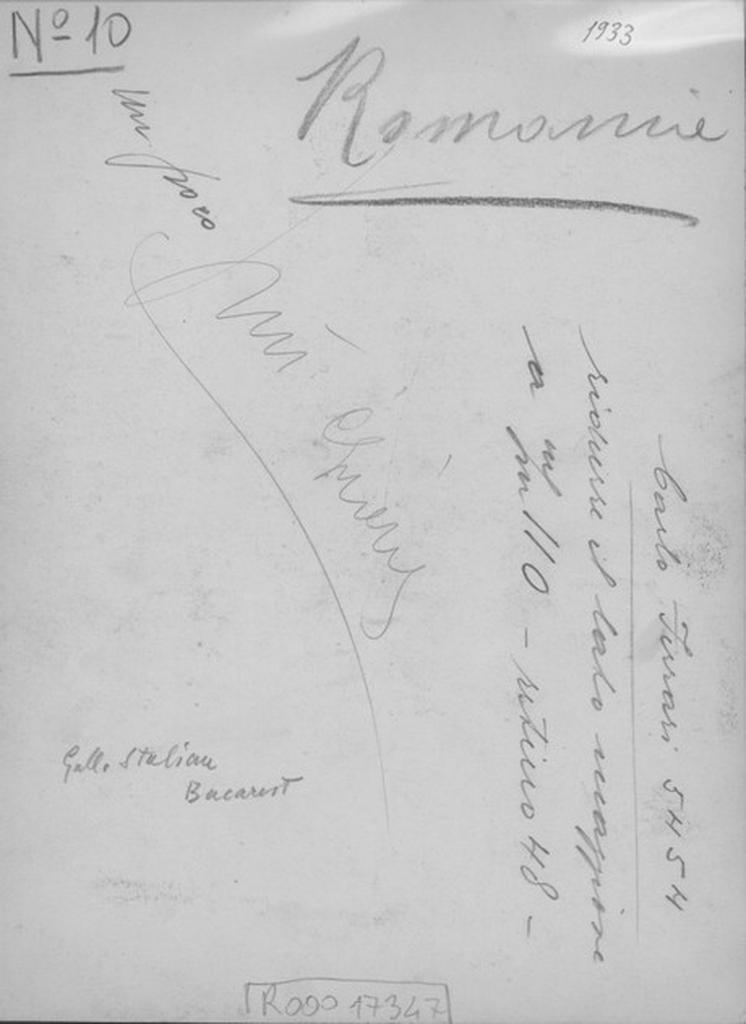 Nº 10
1933
Romanie
un poco
più chiaro
Carlo Ferrari 5454
ridurre il lato maggiore
a m/m 110 - retino 48 -
Bucarest
R000 17347